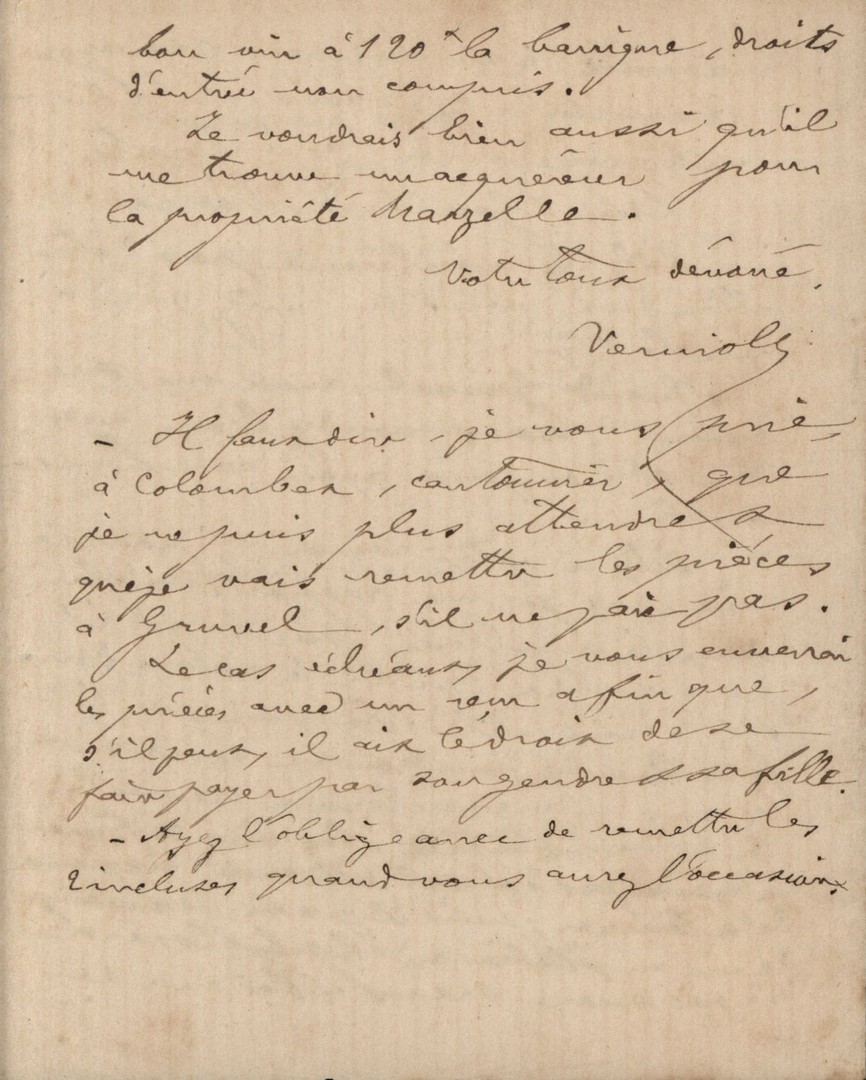 bon vin à 120 f la barrique, droits
d'entrée non compris.
Je voudrais bien aussi qu'il
me trouve un acquéreur pour
la propriété Marzelle.
Votre tout dévoué,
Verniolle
- Il faut dire, je vous prie,
à Colombet, cantonnier, que
je ne puis plus attendre et
que je vais remettre les pièces
à Gruvel, s'il ne paie pas.
Le cas échéant, je vous enverrai
les pièces avec un reçu afin que,
s'il peut, il ait le droit de se
faire payer par son gendre et sa fille.
- Ayez l'obligeance de remettre les
2 incluses quand vous aurez l'occasion.